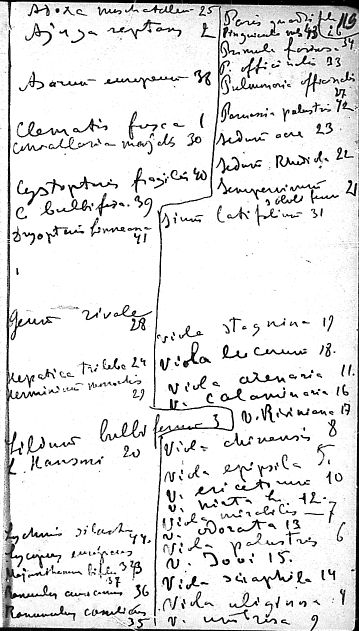 Adoxa moschatellina 25
Ajuga reptans 2
Asarum europaeum 38
Clematis fusca 1
Convallaria majalis 30
Cystopteris fragilis 40
C bulbifera 39
Dryopteris Linneana 41
Geum rivale 28
Hepatica triloba 24
Herminium monorchis 29
Lilium bulbiferum 3
L. Hansoni 20
Lychnis
Lycopus europaeus
Majanthemum bifol.
37
Ranunculus 36
Ranunculus 35
Paris quadrifol
Pinguicula
Primula farinosa 34
P. officinalis 33
Pulmonaria officinalis 27
Parnassia palustris 42
Sedum acre 23
Sedum Rhodiola 22
Sempervivum
21
Sium latifolium 31
Viola stagnina 19
Viola lucorum 18.
Viola arenaria 11.
V. calaminaria 16
V. Riviniana 17
Viola chinensis 8
Viola epipsila 5.
V. ericetorum 10
V. hirta 12.
Viola mirabilis 7
V. odorata 13
Viola palustris 6
V. Jovi 15.
Viola 14
Viola uliginosa 4
V. umbrosa 9